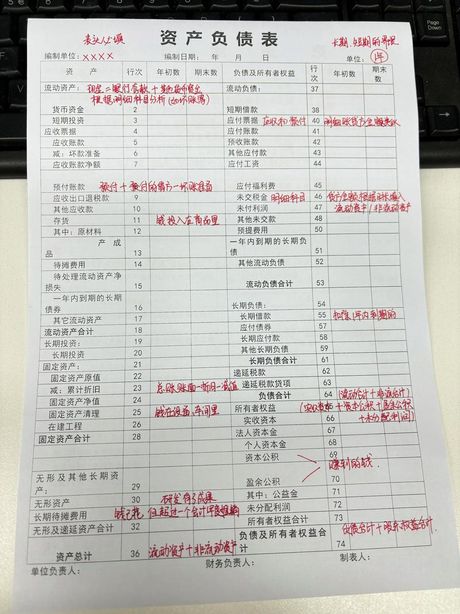 表头必填
资产负债表
长期、短期的界限
编制单位：XXXX 编制日期： 年 月 日 单位：1年
资产 行次 年初数 期末数 负债及所有者权益 行次 年初数 期末数
流动资产： 现金=银行存款+其他货币资金 1 流动负债： 37
根据明细科目分析
货币资金 2 短期借款 38
短期投资 3 应付票据 39
应收票据 4 应付账款 应收和预付 40
应收账款 5 预收账款 41
减：坏款准备 6 其他应付款 43
应收账款净额 7 应付工资 44
预付账款 预付+应付的借方-坏账准备 应付福利费 45
应收出口退税款 9 未交税金 明细科目 46
其他应收款 10 未付利润 47 流动资产/非流动资产
存货 11 钱投入在商品里 其他未交款 48
其中：原材料 12 预提费用 50
产成品 13 一年内到期的长期负债 51
待摊费用 14 其他流动负债 52
待处理流动资产净损失 15 流动负债合计 53
一年内到期的长期债券 16 长期负债： 54
其它流动资产 17 长期借款 55 扣除1年内到期的
流动资产合计 18 应付债券 57
长期投资： 19 长期应付款 58
长期投资 20 其他长期负债 59
固定资产： 21 长期负债合计 61
固定资产原值 22 递延税款 62
减：累计折旧 23 总账账面-折旧-减值 递延税款贷项 63
固定资产净值 24 负债合计 64 (流动合计+非流合计)
固定资产清理 25 钱在设备、车间里 所有者权益
在建工程 26 实收资本 +未分配利润)
固定资产合计 28 法人资本金 67
个人资本金 68
资本公积 69
无形及其他长期资产： 29 盈余公积 70 赚到的钱
无形资产 30 研发有了成果 其中：公益金 71
长期待摊费用 未分配利润 72
无形及递延资产合计 32 所有者权益合计 73
资产总计 36 流动资产+非流动资产 负债及所有者权益合计 74
单位负责人： 财务负责人： 制表人：